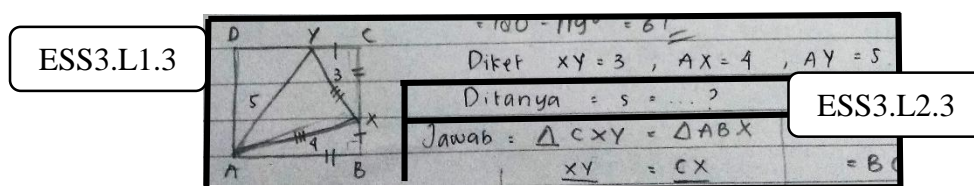 ESS3.L1.3
D Y C
3
5
X
4
A B
= 180 - 119° = 61
Diket XY = 3 , AX = 4 , AY = 5
Ditanya = s = ... ?
ESS3.L2.3
Jawab = Δ CXY = Δ ABX
XY = CX = B